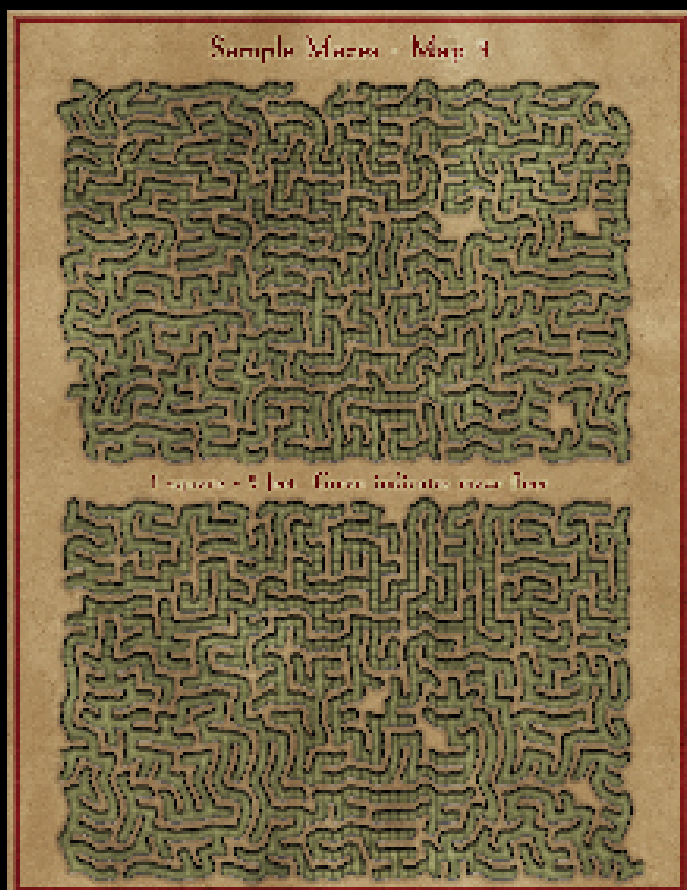 Sample Mazes - Map
1 square = 5 feet. Green indicates maze floor.